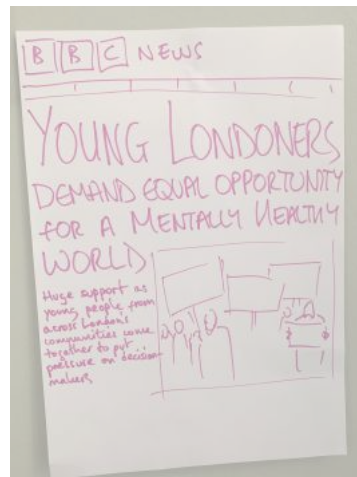 BBC NEWS
YOUNG LONDONERS
DEMAND EQUAL OPPORTUNITY
FOR A MENTALLY HEALTHY
WORLD
Huge support as
young people from
across London's
communities come
together to put
pressure on decision
makers